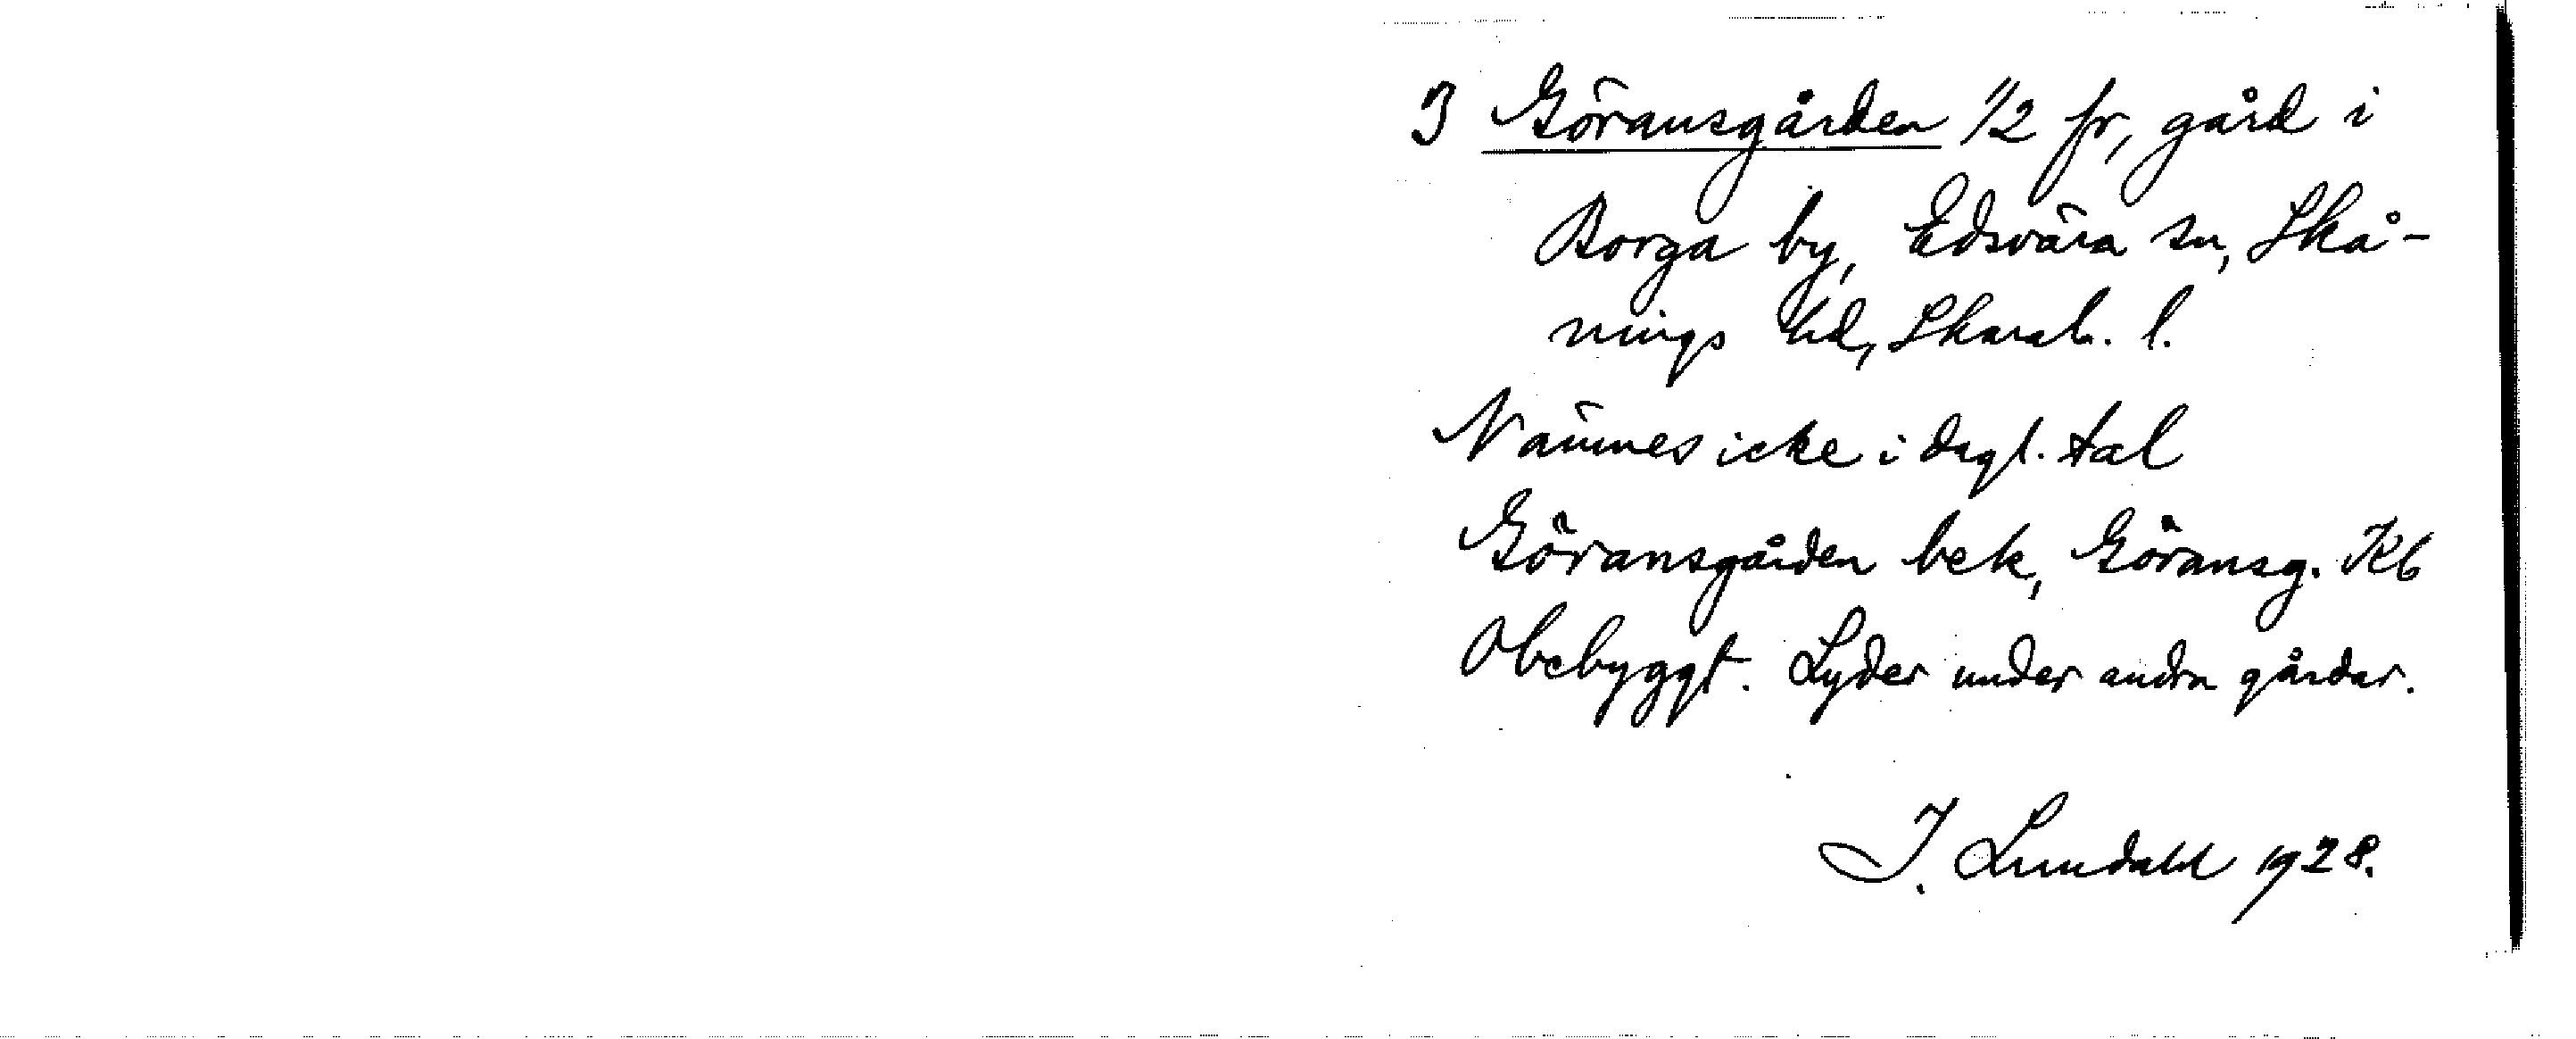 3 Göransgården 1/2 fr, gård i
Borga by, Edsvära sn, Skå-
nings hd, Skarab. l.
Nämnes icke i dagl. tal
Göransgården bek, Göransg. Kb
Obebyggt. Lyder under andra gårdar.
J. Lundahl 1928.